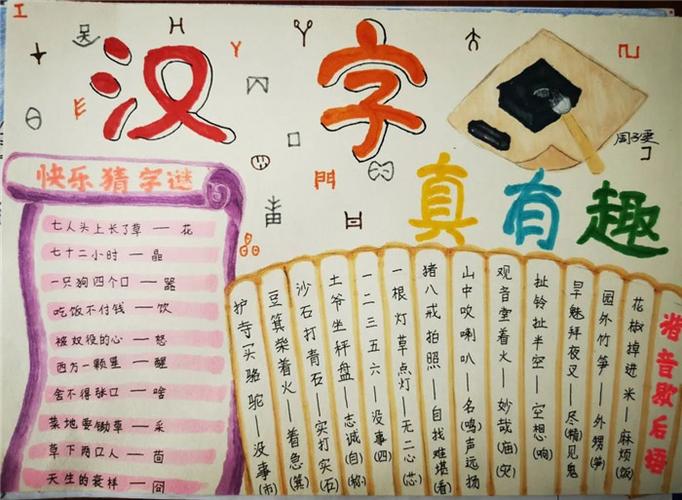 汉字
真有趣
工
門
周子雯
快乐猜字谜
七人头上长了草 — 花
七十二小时 — 晶
一只狗四个口 — 器
吃饭不付钱 — 饮
被奴役的心 — 怒
西方一颗星 — 醒
舍不得张口 — 啥
菜地要锄草 — 采
草下两口人 — 茴
天生的衰样 —
谐音歇后语
花椒掉进米——麻烦(饭)
园外竹笋——外甥(笋)
旱魃拜夜叉——尽(精)见鬼
扯铃扯半空——空想(响)
观音堂着火——妙哉(庙)(灾)
山中吹喇叭——名(鸣)声远扬
猪八戒拍照——自找难堪(看)
一根灯草点灯——无二心(芯)
一二三五六——没事(四)
土爷坐秤盘——志诚(自)(称)
沙石打青石——实打实(石)
豆箕着火——着急(箕)
护寺一头骆驼——没事(市)